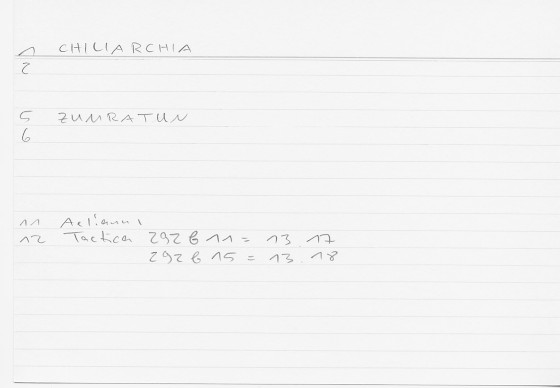 1 CHILIARCHIA
2
5 ZUMRATUN
6
11 Aelianus
12 Tactica 292 b 11 = 13, 17
292 b 15 = 13, 18